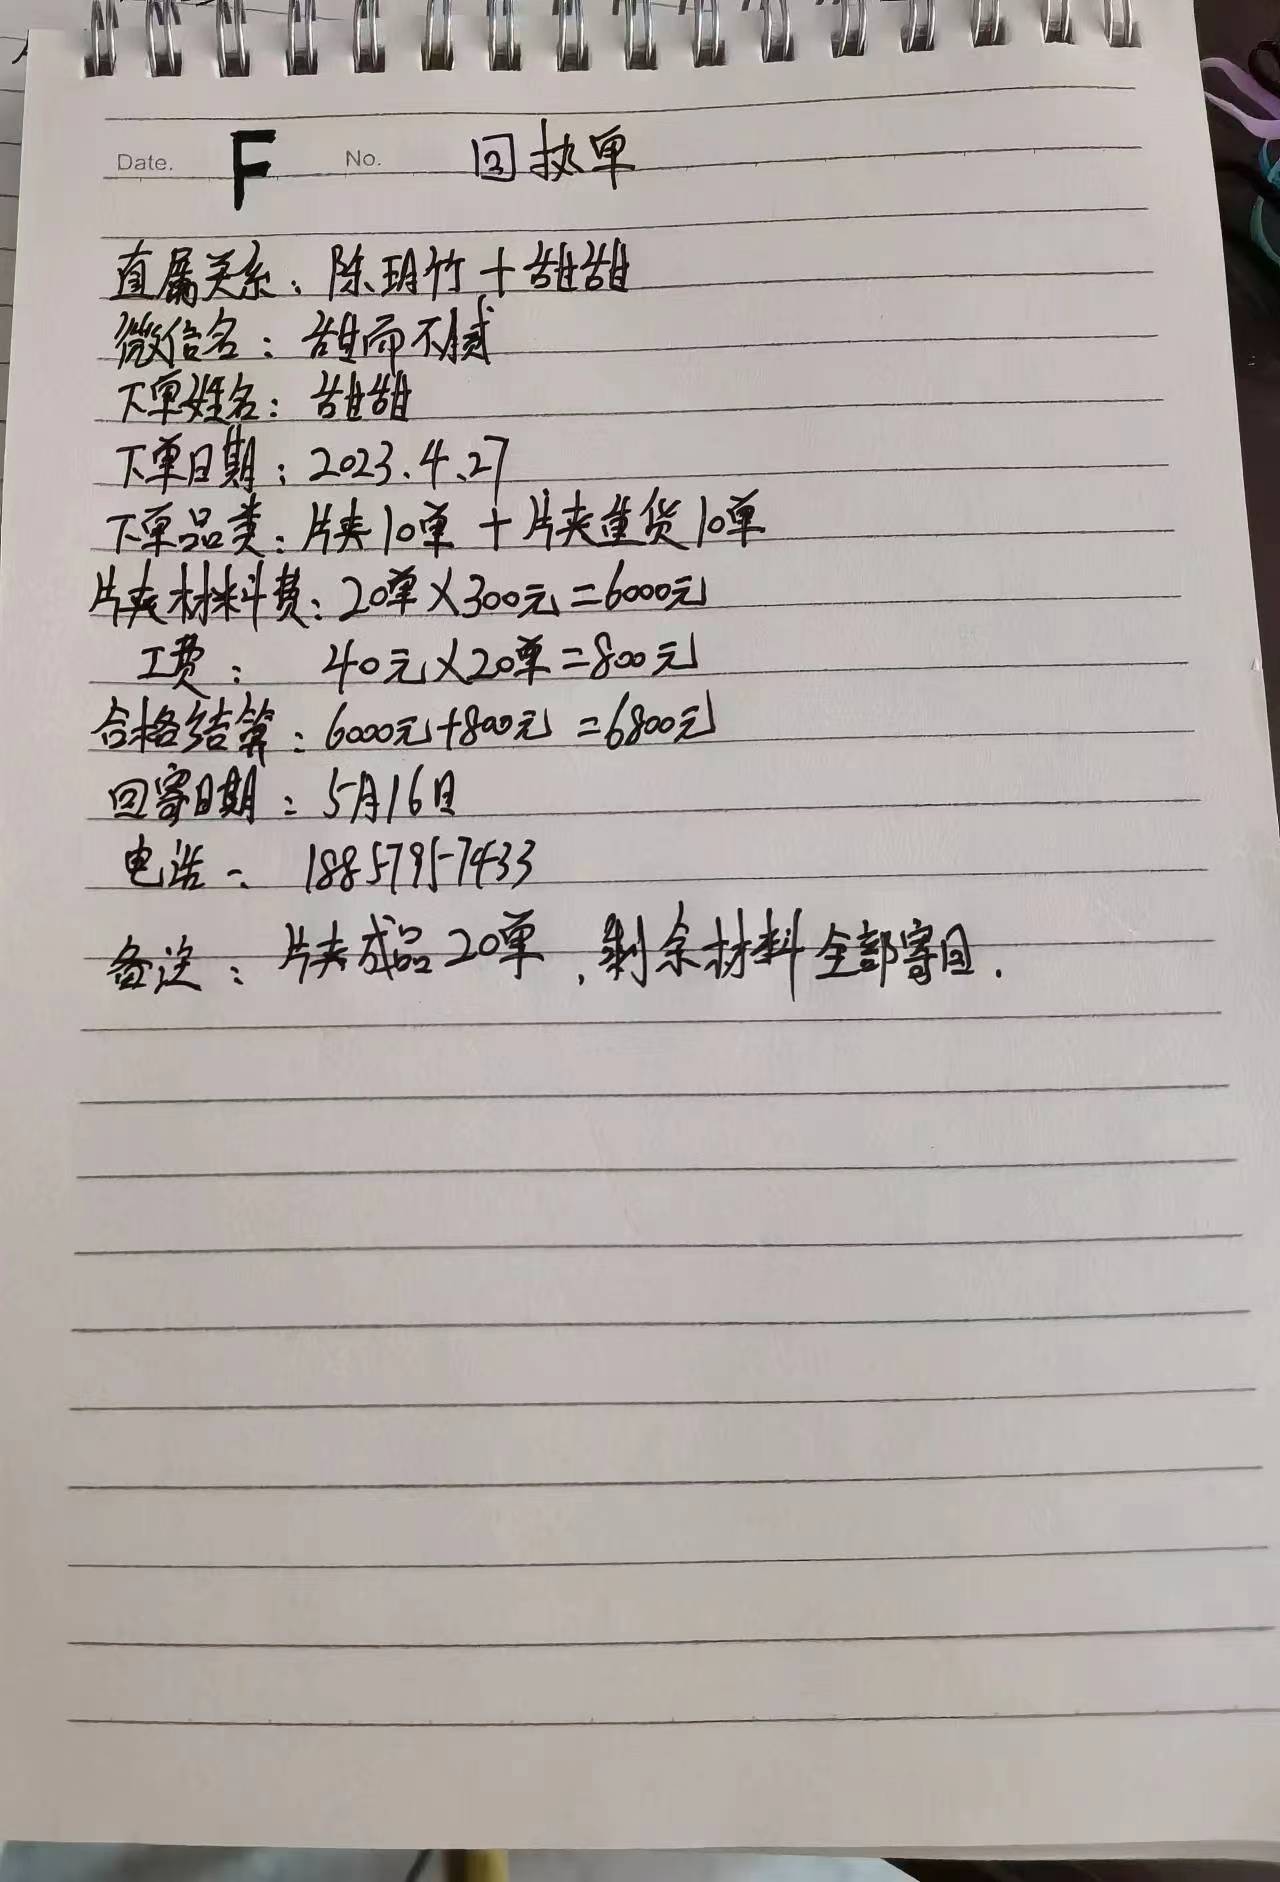 Date. F No. 回执单
直属关系：陈玥竹+甜甜
微信名：甜而不腻
下单姓名：甜甜
下单日期：2023.4.27
下单品类：片夹10单+片夹重货10单
片夹材料费：20单×300元=6000元
工费：40元×20单=800元
合格结算：6000元+800元=6800元
回寄日期：5月16日
电话：18857957433
备注：片夹成品20单，剩余材料全部寄回.